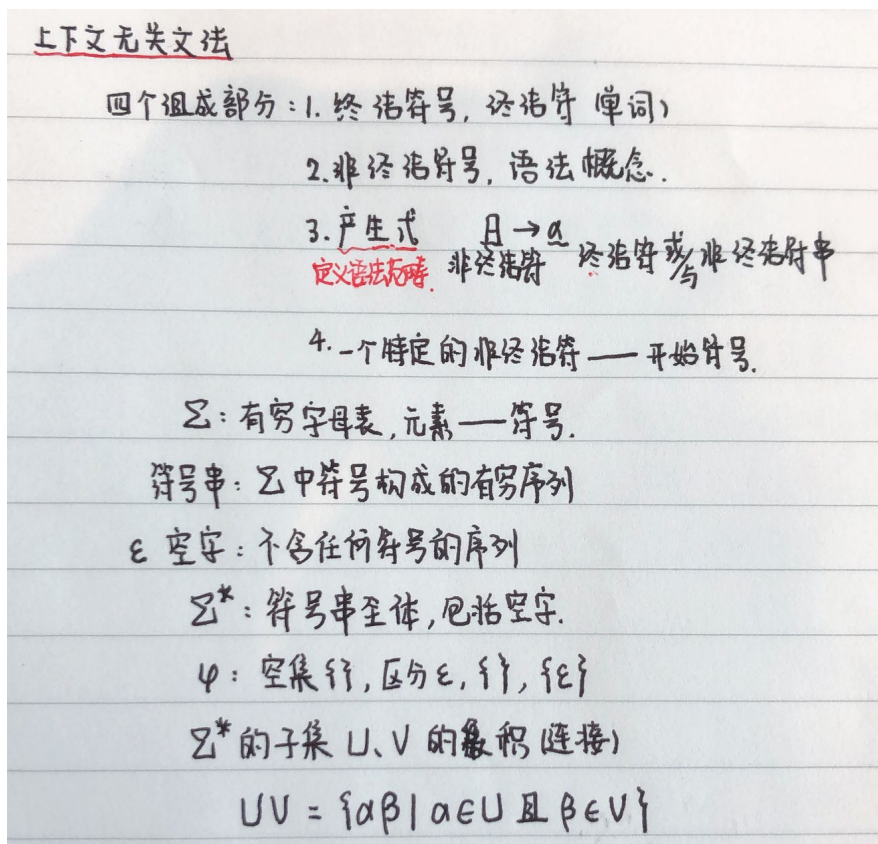 上下文无关文法
四个组成部分:1. 终结符号, 终结符 (单词)
2. 非终结符号, 语法概念.
3. 产生式 A → α
定义语法范畴. 非终结符 终结符或/与非终结符串
4. 一个特定的非终结符 — 开始符号.
Σ: 有穷字母表, 元素 — 符号.
符号串: Σ中符号构成的有穷序列
ε 空字: 不含任何符号的序列
Σ*: 符号串全体, 包括空字.
φ: 空集{}, 区分ε, {}, {ε}
Σ*的子集 U、V 的积 (连接)
UV = {αβ | α∈U 且 β∈V}